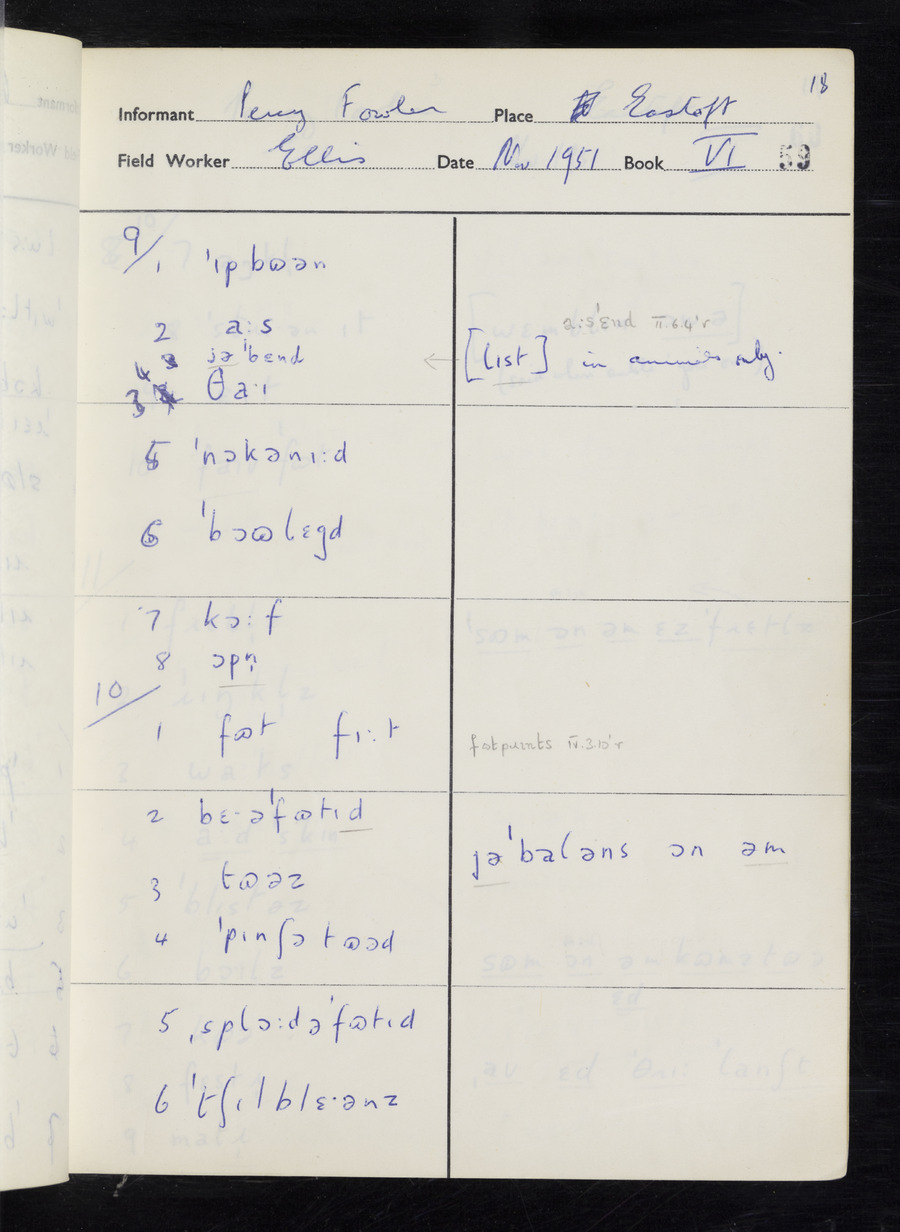 18
Informant Percy Fowler Place Eastoft
Field Worker Ellis Date Nov 1951 Book VI 59
9/
1 ˈɪpbɷən
2 a:s
a:sˈɛnd II.6.4'r
4 jəˈbɛnd ← [lɪst] in animals only.
3 θa·ɪ
5 ˈnɔkənɪ:d
6 ˈbɔɷlɛgd
7 kɔ:f
8 ɔpn̩
10/
1 fɷt fɪ:t
fɷtpɹɪnts IV.3.10'r
2 bɛ·əˈfɷtɪd
jəˈbaləns ɔn əm
3 tɷəz
4 ˈpɪnʃə tɷəd
5 ˌsplɔ:dəˈfɷtɪd
6 ˈtʃɪlblɛ·ənz